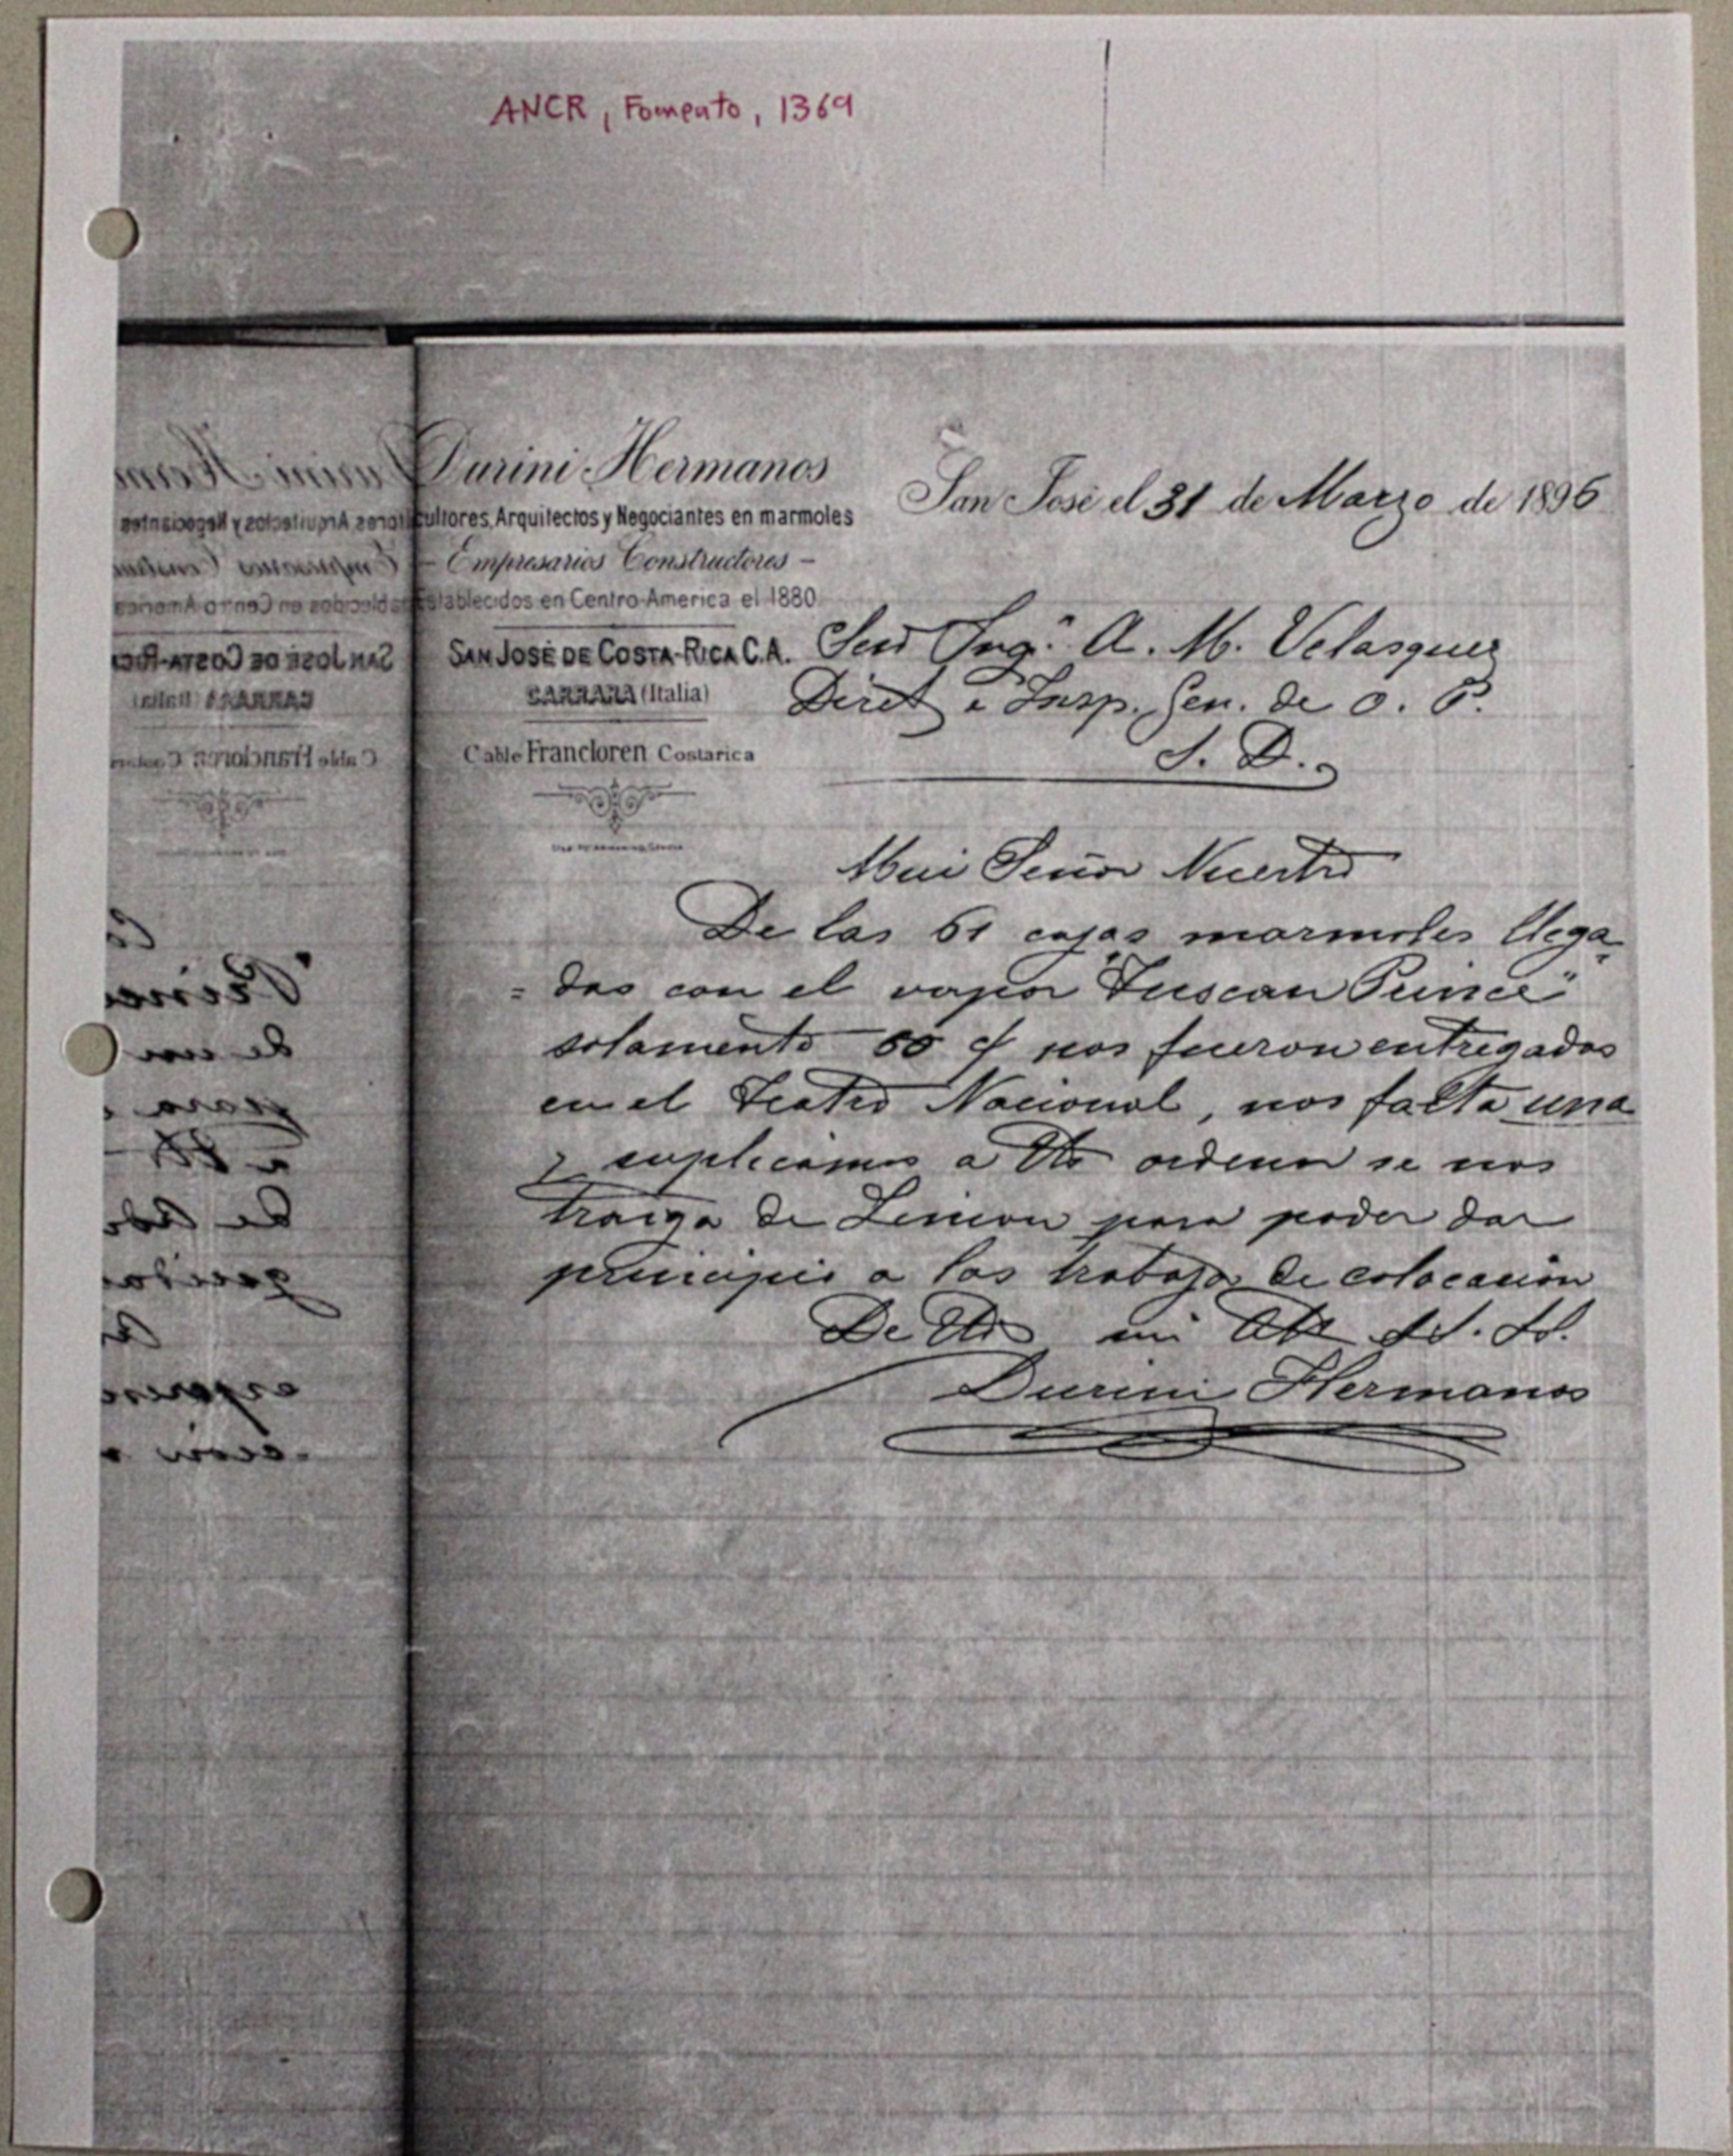 ANCR, Fomento, 1369
Durini Hermanos
cultores, Arquitectos y Negociantes en marmoles
- Empresarios Constructores -
Establecidos en Centro-America el 1880
SAN JOSÉ DE COSTA-RICA C.A.
CARRARA (Italia)
Cable Francloren Costarica
San José el 31 de Marzo de 1896
Señ Ing.º A. M. Velasquez
Direct e Insp. Gen. de O. P.
S. D.
Mui Señor Nuestro
De las 61 cajas marmoles llega
= das con el vapor "Tuscan Prince"
solamente 60 nos fueron entregadas
en el Teatro Nacional, nos falta una
y suplicamos a Ud ordenar se nos
traiga de Limon para poder dar
principio a los trabajos de colocacion
De Ud Att SS. SS.
Durini Hermanos